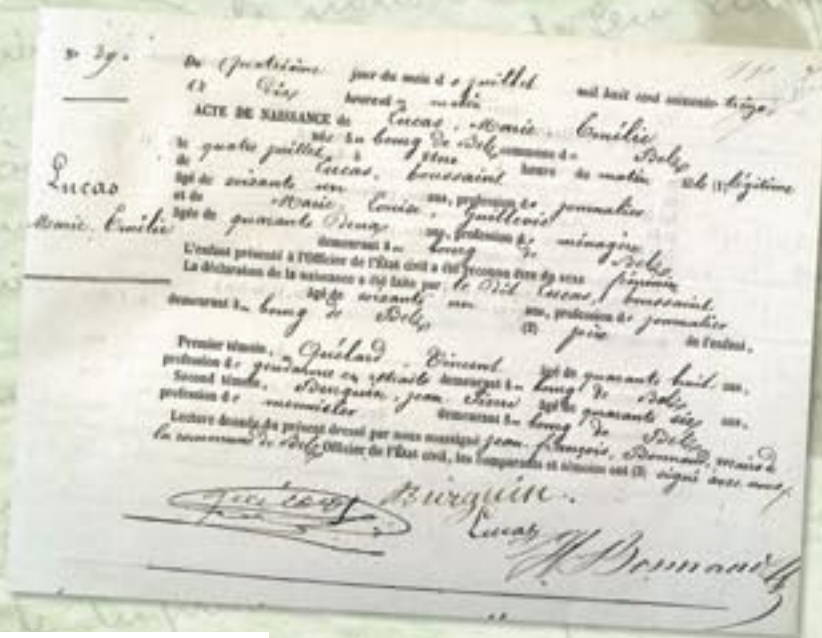 N° 39.
Lucas
Marie Emilie
Du quatrième jour du mois de juillet mil huit cent soixante treize
à Dix heures du matin
ACTE DE NAISSANCE de Lucas, Marie Emilie
née au bourg de Belz commune de Belz
le quatre juillet à heure du matin fille (1) légitime
de Lucas, Toussaint
âgé de soixante un ans, profession de journalier
et de Marie Louise Guillevic
âgée de quarante Deux ans, profession de ménagère
demeurant au bourg de Belz
L'enfant présenté à l'Officier de l'État civil a été reconnu être du sexe féminin
La déclaration de la naissance a été faite par le Dit Lucas, Toussaint
âgé de soixante un ans, profession de journalier
demeurant au bourg de Belz (2) père de l'enfant.
Premier témoin, Quélard Vincent âgé de quarante huit ans,
profession de gendarme en retraite demeurant au bourg de Belz
Second témoin, Burguin, jean Pierre âgé de quarante six ans,
profession de menuisier demeurant au bourg de Belz
Lecture donnée du présent dressé par nous soussigné jean françois, Bonnard, maire de
la commune de Belz Officier de l'État civil, les comparants et témoins ont (3) signé avec nous
Burguin.
Lucas
Bonnard